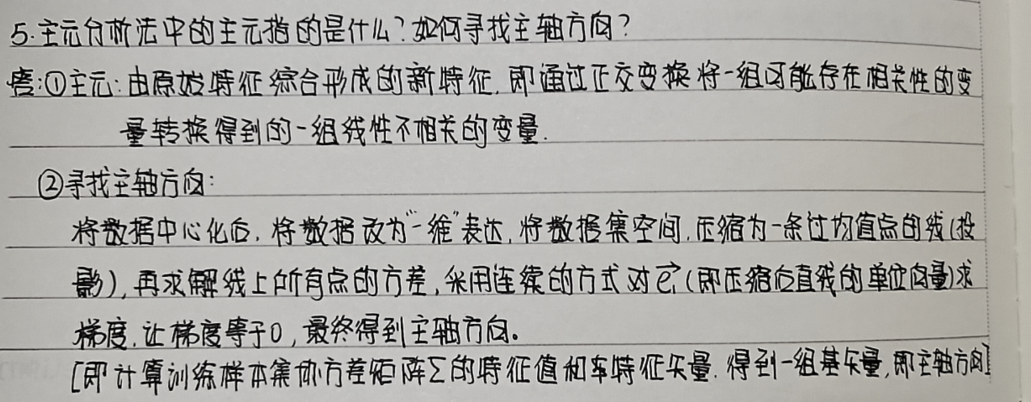 5.主元分析法中的主元指的是什么?如何寻找主轴方向?
答:①主元:由原始特征综合形成的新特征,即通过正交变换将一组可能存在相关性的变
量转换得到的一组线性不相关的变量.
②寻找主轴方向:
将数据中心化后,将数据改为"一维"表达,将数据集空间,压缩为一条过均值点的线(投
影),再求解线上所有点的方差,采用连续的方式对e₁(即压缩后直线的单位向量)求
梯度,让梯度等于0,最终得到主轴方向。
[即计算训练样本集协方差矩阵Σ的特征值和本特征矢量.得到一组基矢量,即主轴方向]